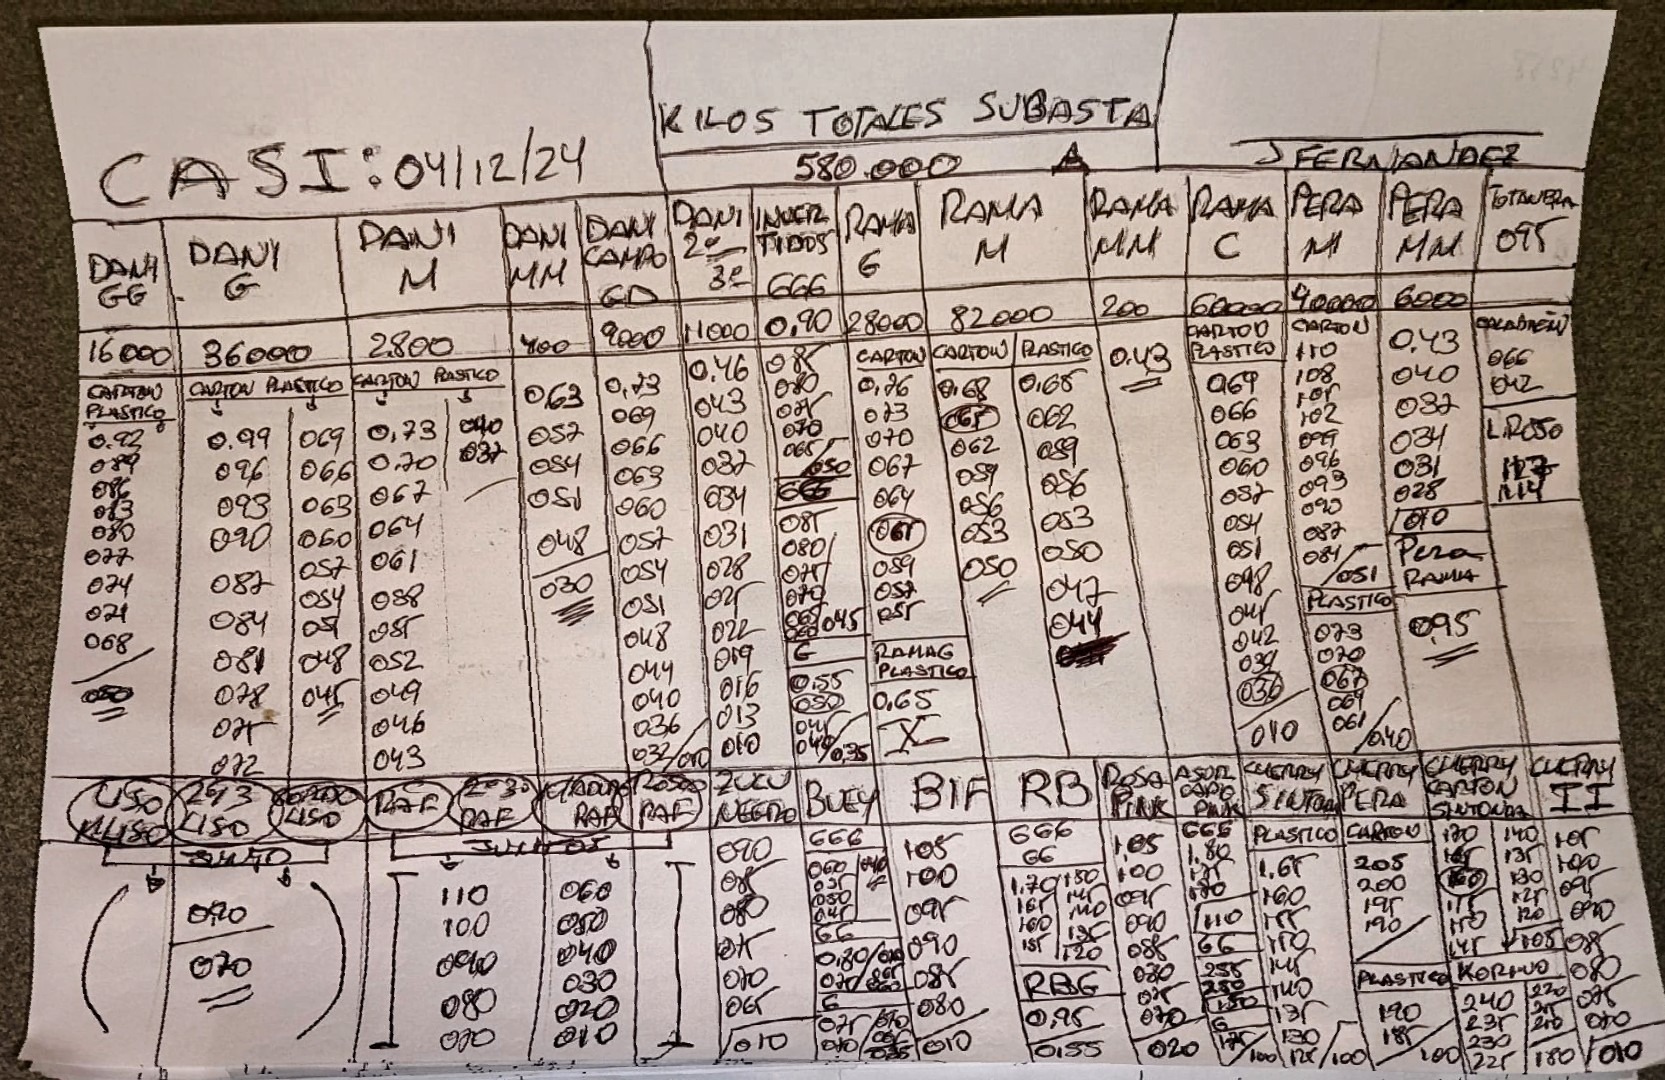 KILOS TOTALES SUBASTA
580.000
CASI: 04/12/24
J FERNANDEZ
DANI GG
16000
CARTON
PLASTICO
0.92
089
086
083
080
077
074
071
068
050
DANI G
36000
CARTON PLASTICO
0.99 069
096 066
093 063
090 060
087 057
084 054
081 051
078 048
075 045
072
DANI M
2.800
CARTON PLASTICO
0,73 040
0.70 037
067
064
061
058
055
052
049
046
043
DANI MM
400
0,63
057
054
051
048
030
DANI CAMPO GD
9000
0,73
069
066
063
060
057
054
051
048
044
040
036
032/010
DANI 2ª 3ª
11000
0.46
043
040
037
034
031
028
025
022
019
016
013
010
INVERTIDOS
666
0,90
085
080
075
070
065/050
666
085
080
075
070
045
G
0.55
050
045
040/035
RAMA G
28000
CARTON
0,76
073
070
067
064
061
059
057
055
RAMA G
PLASTICO
0.65
RAMA M
82000
CARTON PLASTICO
0.68 0.65
065 062
062 059
059 056
056 053
053 050
050 047
044
RAMA MM
200
0.43
RAMA C
60000
CARTON
PLASTICO
069
066
063
060
057
054
051
048
045
042
039
036
010
PERA M
40000
CARTON
110
108
105
102
099
096
093
090
087
084/051
PLASTICO
073
070
067
064
061/040
PERA MM
6000
0.43
040
037
034
031
028
010
Pera
RAMA
0,95
095
066
042
L.ROSO
114
LISO
2 Y 3 LISO
LISO
JUNTO
090
070
RAF
2ª 3ª RAF
RAF
ROSA RAF
JUNTOS
110 060
100 050
090 040
080 030
070 020
010
ZULU NEGRO
090
085
080
075
070
065
010
BUEY
666
060
055
050
045
66
G
BIF
105
100
095
090
085
080
010
RB
666
66
1.70 150
165 145
160 140
155 135
120
RBG
0,95
0.55
ROSA PINK
1,05
100
095
090
085
080
075
070
020
PINK
666
1.80
110
66
255
250
150
G
175/100
CHERRY SINTONIA
PLASTICO
1,65
160
155
150
145
140
135
130
125/100
CHERRY PERA
CARTON
205
200
195
190
PLASTICO
190
185
100
CHERRY CARTON SINTONIA
170 140
165 135
160 130
155 125
150 120
145 105
240 220
235 215
230 210
225 180
CHERRY II
105
100
095
090
085
080
075
070
010